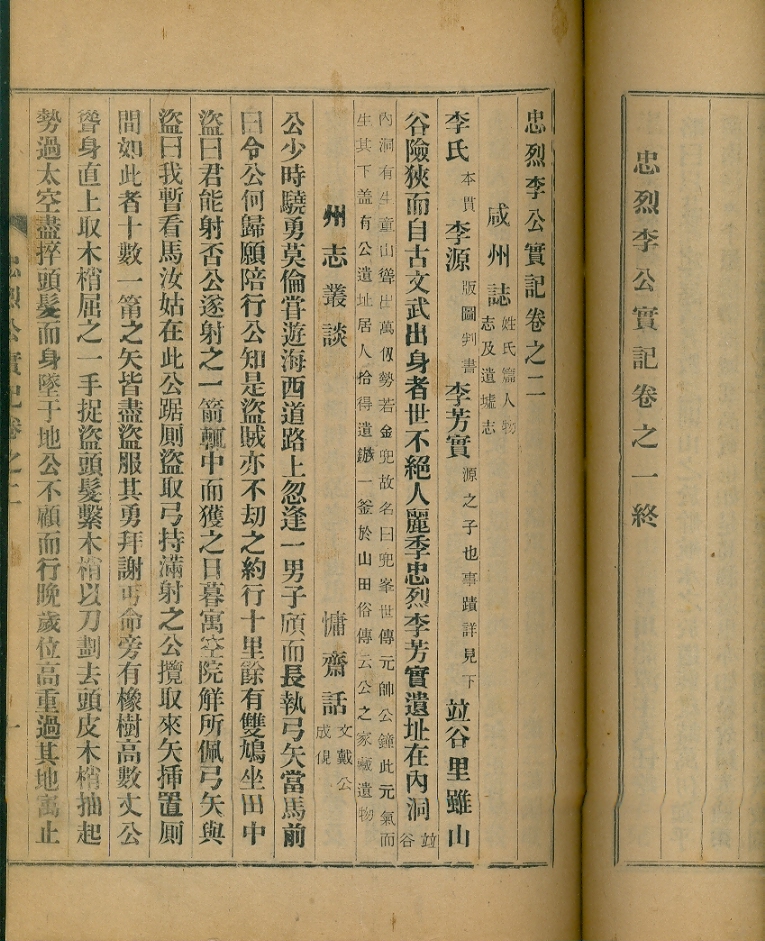 忠烈李公實記卷之一終
忠烈李公實記卷之二
咸州誌 姓氏篇人物志及遺墟志
李氏 本貫 李源 版圖判書 李芳實 源之子也事蹟詳見下 竝谷里雖山
谷險狹而自古文武出身者世不絕人麗季忠烈李芳實遺址在內洞 竝谷
內洞有生童山聳出萬仞勢若金兜故名曰兜峯世傳元帥公鐘此元氣而
生其下盖有公遺址居人拾得遺鏃一釜於山田俗傳云公之家藏遺物
州志叢談 慵齋話 文戴公成俔
公少時驍勇莫倫甞遊海西道路上忽逢一男子頎而長執弓矢當馬前
曰令公何歸願陪行公知是盜賊亦不刧之約行十里餘有雙鳩坐田中
盜曰君能射否公遂射之一箭輒中而獲之日暮寓空院觧所佩弓矢與
盜曰我暫看馬汝姑在此公踞厠盜取弓持滿射之公攬取來矢揷置厠
間如此者十數一箙之矢皆盡盜服其勇拜謝丐命旁有橡樹高數丈公
聳身直上取木梢屈之一手捉盜頭髮繫木梢以刀劃去頭皮木梢抽起
勢過太空盡捽頭髮而身墜于地公不顧而行晩歲位高重過其地寓止
忠烈公實記卷之二 一